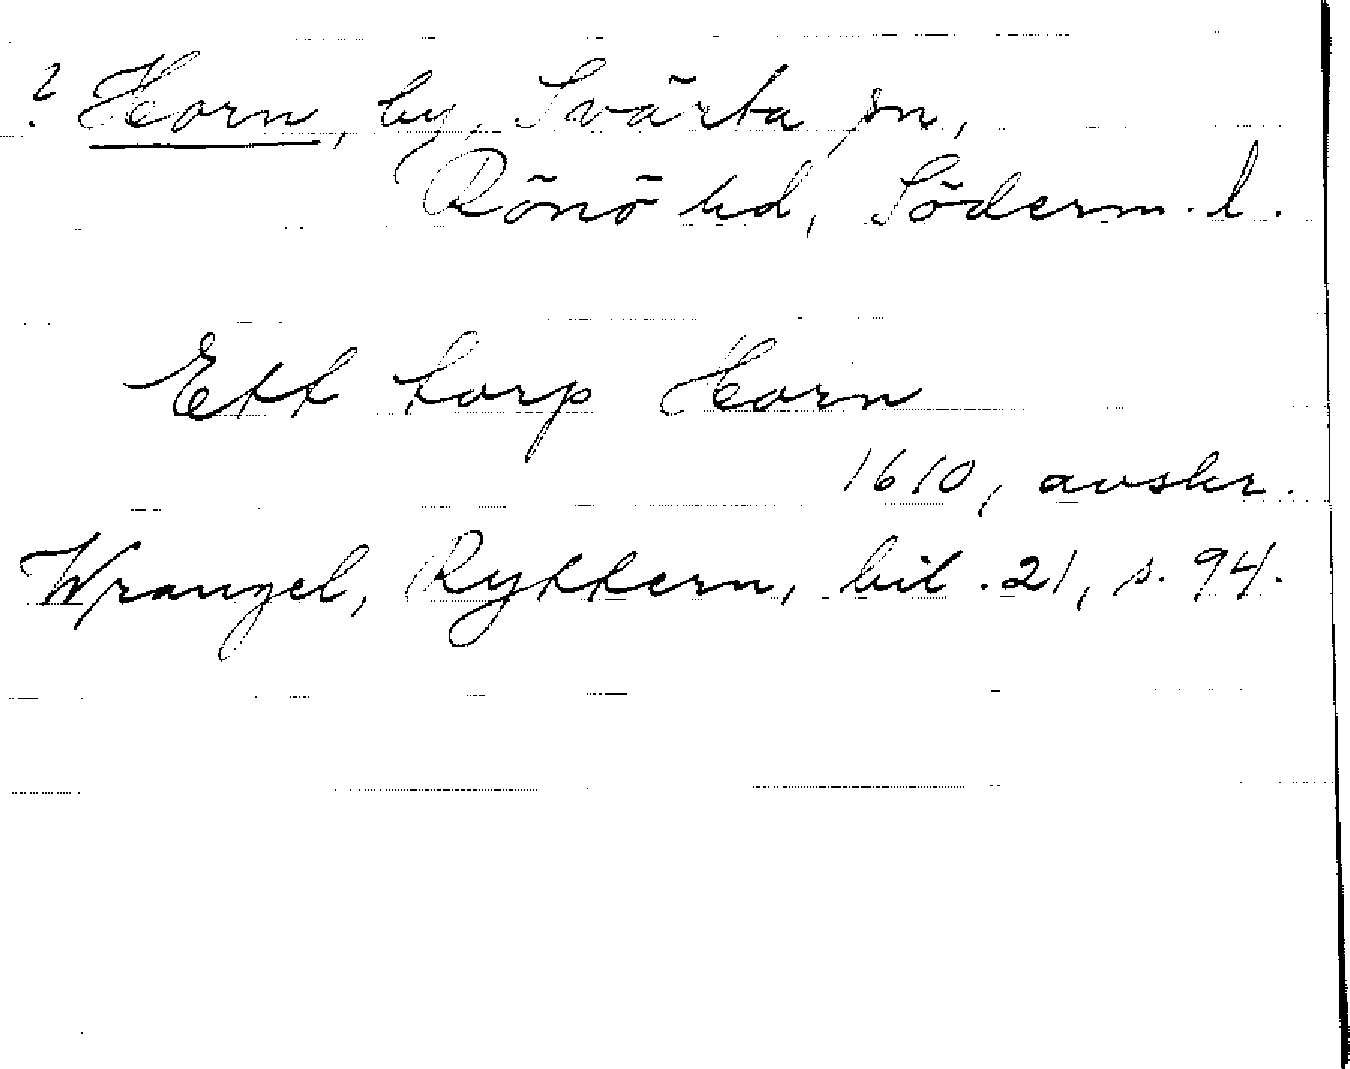 ? Horn, by, Svärta sn,
Rönö hd, Söderm. l.
Ett torp Horn
1610, avskr.
Wrangel, Ryttern, bil. 21, s. 94.